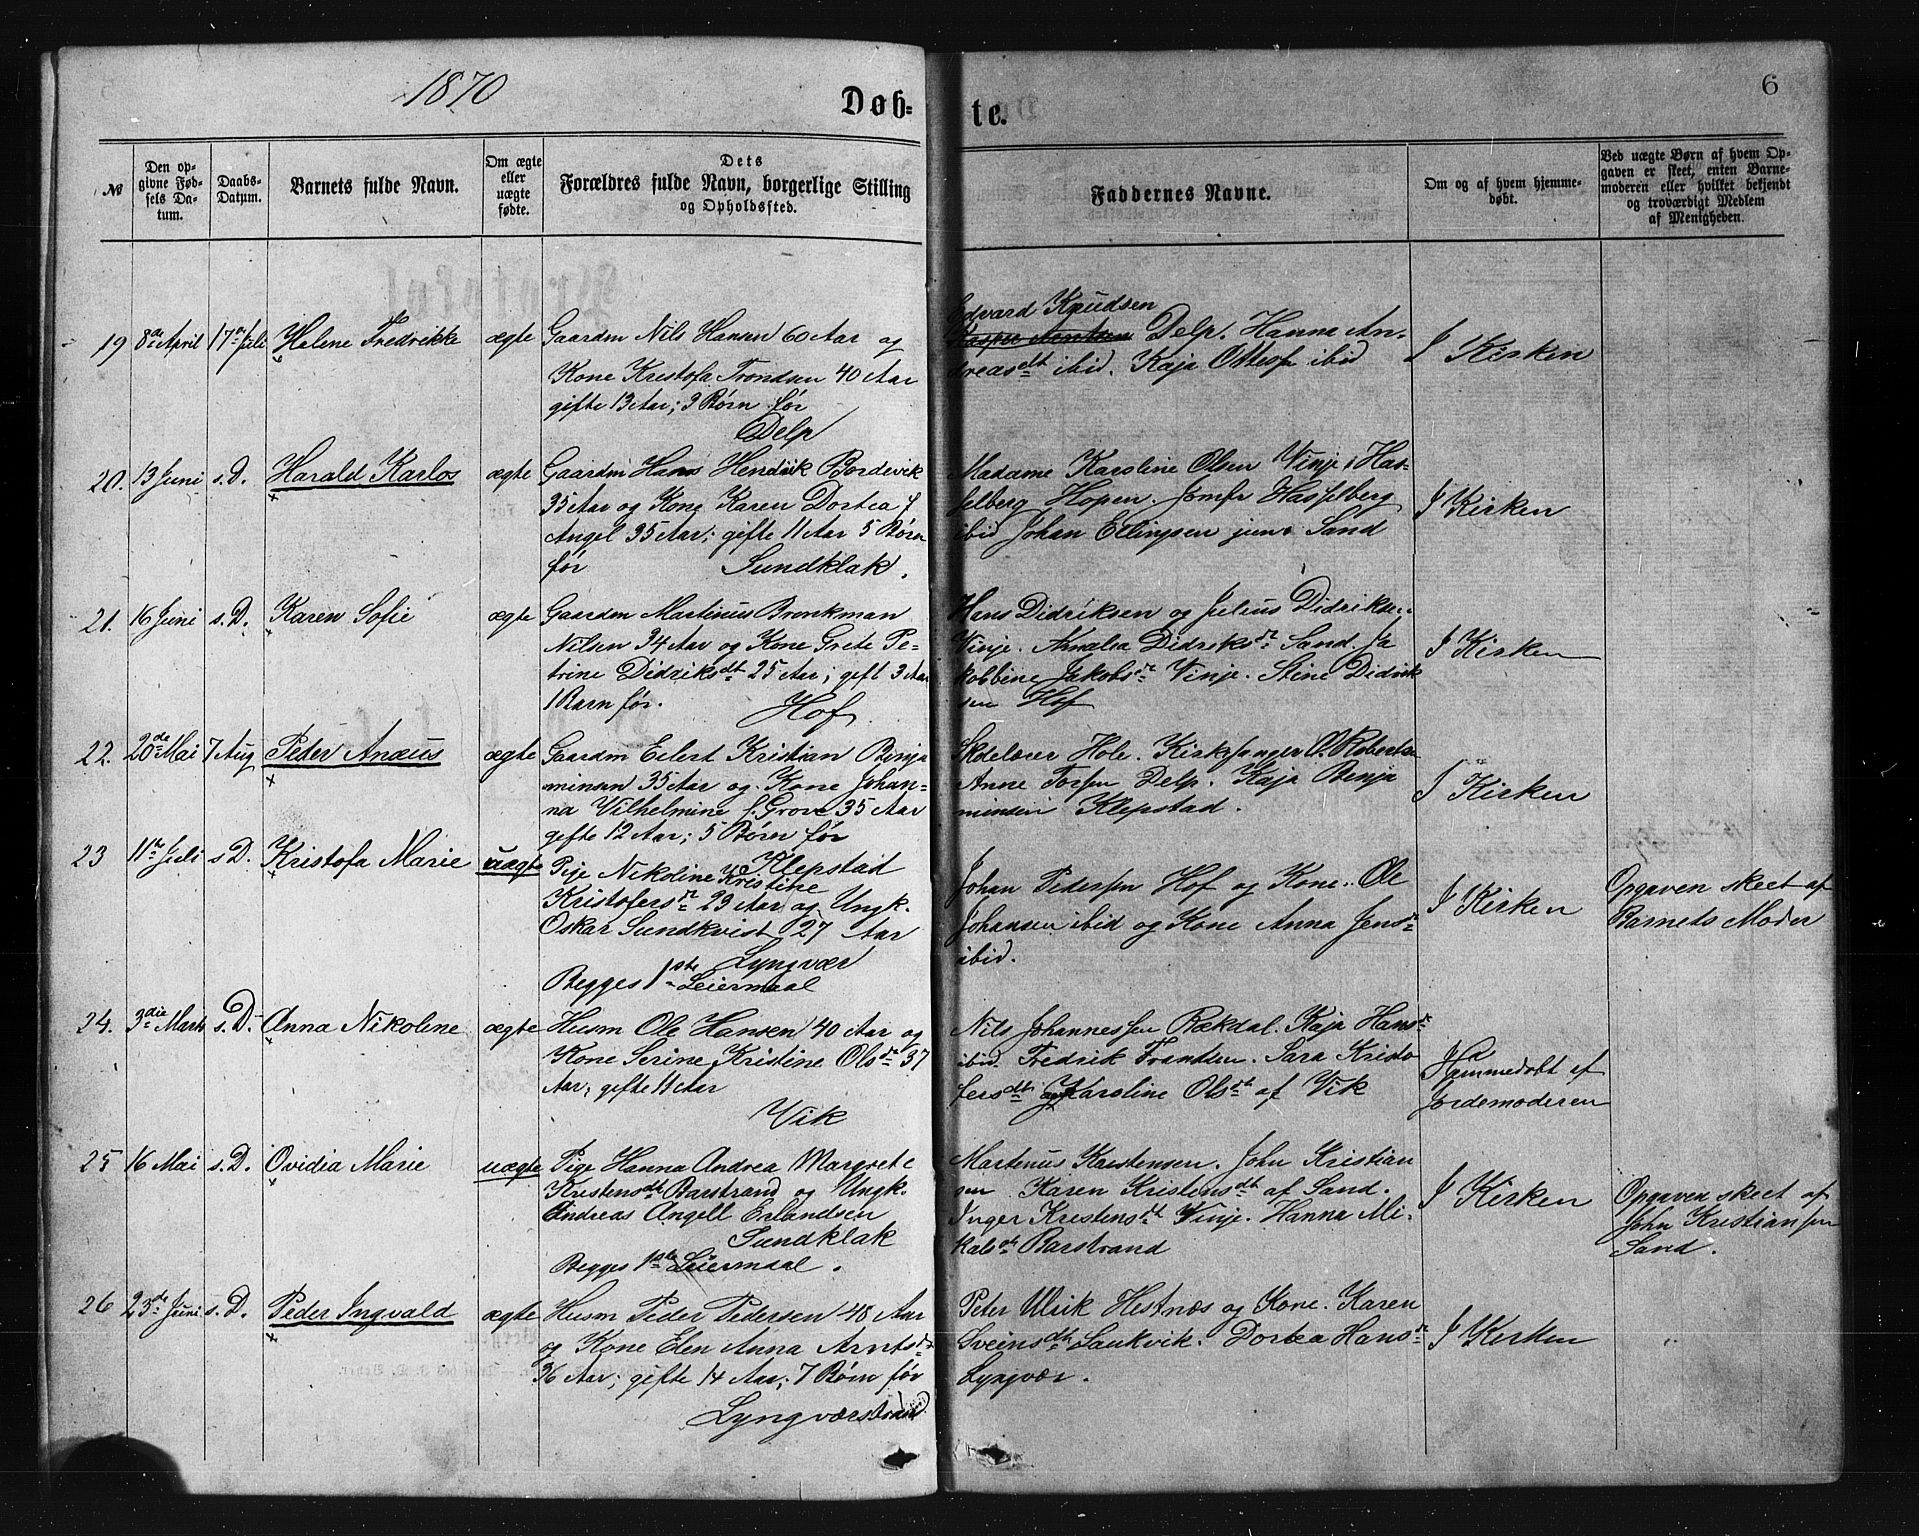 1870
Døb-
te.
6
№
Den op-
givne Fød-
sels Da-
tum.
Daabs-
Datum.
Barnets fulde Navn.
Om ægte
eller
uægte
fødte.
Dets
Forældres fulde Navn, borgerlige Stilling
og Opholdssted.
Faddernes Navne.
Om og af hvem hjemme-
døbt.
Ved uægte Børn af hvem Op-
gaven er skeet, enten Barne-
moderen eller hvilket bekjendt
og troværdigt Medlem
af Menigheden.
19 8de April 17de Juli Helene Fredrikke ægte
Gaardm Nils Hansen 60 Aar og
Kone Kristofa Trondsen 40 Aar
gifte 13 Aar; 3 Børn før
Delp
Edvard Knudsen
Delp. Hanna An-
dreasdt ibid. Kaja Ottesen ibid
I Kirken
20. 13 Juni s. D. Harald Karlos ægte
Gaardm Hans Hendrik Bordevik
35 Aar og Kone Karen Dortea f
Angel 35 Aar; gifte 11 Aar 5 Børn
før Sundklak.
Madame Karoline Olsen Vinje, Has-
selberg Hopen. Jomfr Hasselberg
ibid Johan Ellingsen jun. Sand
I Kirken
21. 16 Juni s. D. Karen Sofie ægte
Gaardm Martinus Bronkman
Nilsen 34 Aar og Kone Grete Pe-
trine Didriksdt 25 Aar; gift 3 Aar
1 Barn før. Hof
Hans Didriksen og Julius Didriksen
Vinje. Amalia Didriksdt Sand. Ja
kobbine Jakobsdt Vinje. Stine Didrik
sen Hof
I Kirken
22. 20de Mai 7 Aug Peder Anæus ægte
Gaardm Eilert Kristian Binja
minsen 35 Aar og Kone Johan-
na Vilhelmine f. Grove 35 Aar
gifte 12 Aar; 5 Børn før
Klepstad
Skolelærer Hole. Kirkesanger O. Roberts.
Anne Torsen Delp. Kaja Benja
minsen Klepstad.
I Kirken
23 11te Juli s D. Kristofa Marie uægte
Pige Nikoline Kristine
Kristofersdt 29 Aar og Ungk.
Oskar Sundkvist 27 Aar
Lyngvær
Begges 1ste Leiermaal
Johan Pedersen Hof og Kone. Ole
Johansen ibid og Kone Anna Jensdt
ibid.
I Kirken
Opgaven skeet af
Barnets Moder
24. 3die Marts s. D. Anna Nikoline ægte
Husm Ole Hansen 40 Aar og
Kone Serine Kristine Olsdt 37
Aar; gifte 11 Aar
Vik
Nils Johannessen Bækdal. Kaja Hansdt
ibid. Fredrik Frantsen. Sara Kristo
fersdt og Karoline Olsdt af Vik
Ja
Hjemmedøbt af
Jordemoderen
25 16 Mai s. D. Ovidia Marie uægte
Pige Hanna Andrea Margrete
Kristensdt Barstrand og Ungk.
Andreas Angell Erlandsen
Sundklak
Begges 1ste Leiermaal.
Martinus Karstensen. John Kristian
sen Karen Kristensdt af Sand.
Inger Kristensdt Vinje. Hanna Mi-
kalsdt Barstrand
I Kirken
Opgaven skeet af
John Kristiansen
Sand.
26 23de Juni s. D. Peder Ingvald ægte
Husm Peder Pedersen 48 Aar
og Kone Elen Anna Arntsdt
36 Aar; gifte 14 Aar; 7 Børn før
Lyngværstrand
Peter Ulrik Hestnæs og Kone. Karen
Sveinsdt Laukvik. Dortea Hansdt
Lyngvær.
I Kirken